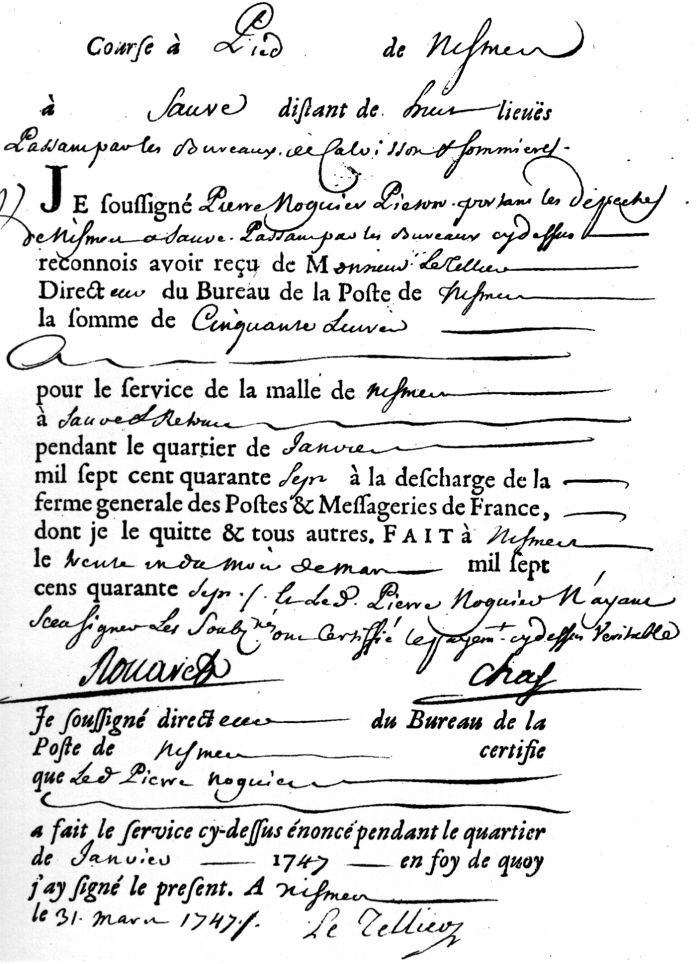 Courſe à Pied de Niſmes
à Sauve diſtant de huit lieuës
Paſſant par les Bureaux de Calviſſon & Sommieres.
JE ſouſſigné Pierre Noguier Pieton portant les dépeches
de Niſmes a Sauve Paſſant par les Bureaux cy deſſus
reconnois avoir reçu de Monſieur Le Tellier
Directeur du Bureau de la Poſte de Niſmes
la ſomme de Cinquante Livres
pour le ſervice de la malle de Niſmes
à Sauve & Retour
pendant le quartier de Janvier
mil ſept cent quarante Sept à la deſcharge de la
ferme generale des Poſtes & Meſſageries de France,
dont je le quitte & tous autres. FAIT à Niſmes
le trente un du Mois de mars mil ſept
cens quarante Sept. Le Led. Pierre Noguier N'ayant
Sceu ſigner Les Soubz.nés ont Certiffié le payemt. cy deſſus Veritable
Rouareſ Chaſ
Je ſouſſigné directeur du Bureau de la
Poſte de Niſmes certifie
que Led Pierre Noguier
a fait le ſervice cy-deſſus énoncé pendant le quartier
de Janvier 1747 en foy de quoy
j'ay ſigné le preſent. A Niſmes
le 31. Mars 1747.
Le Tellier